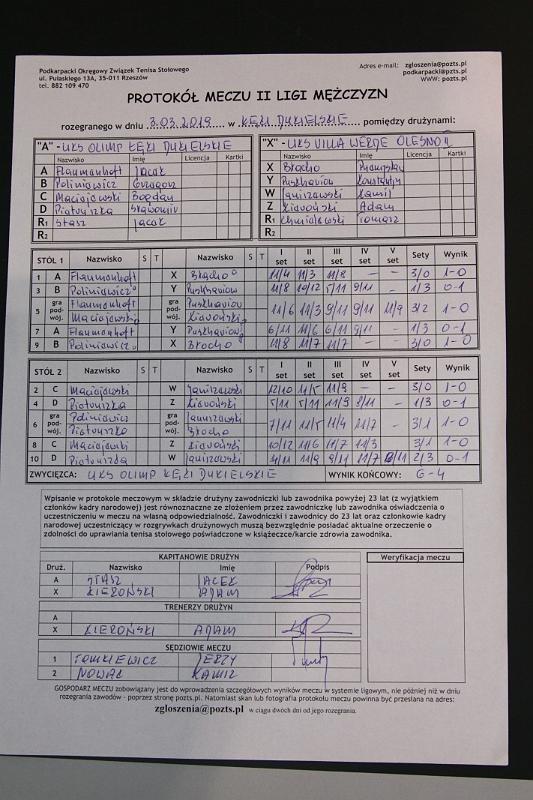 Podkarpacki Okręgowy Związek Tenisa Stołowego
ul. Pułaskiego 13A, 35-011 Rzeszów
tel. 882 109 470
Adres e-mail: zgloszenia@pozts.pl
podkarpacki@pzts.pl
WWW: pozts.pl
PROTOKÓŁ MECZU II LIGI MĘŻCZYZN
rozegranego w dniu 3.03.2019 w KĘKI DUKIELSKIE pomiędzy drużynami:
"A" - UKS OLIMP ŁĘKI DUKIELSKIE
"X" - UKS VILLA WERDE
Nazwisko Imię Licencja Kartki
Nazwisko Imię Licencja Kartki
A Flaumenhoft Jacek
X Brocho
B Poliniewicz Grzegorz
Y Puskhaviov Konstantyn
C Maciejowski Bogdan
W Kamil
D Sławomir
Z Adam
R1 Stasz Jacek
R1 Tomasz
R2
R2
STÓL 1 Nazwisko S T Nazwisko S T I set II set III set IV set V set Sety Wynik
1 A Flaumenhoft X 11/4 11/3 11/8 – – 3/0 1-0
3 B Poliniewicz Y Puskhaviov 11/8 10/12 5/11 9/11 – 1/3 0-1
5 gra podwój. Flaumenhoft gra podwój. Puskhaviov 11/6 11/3 9/11 9/11 11/9 3/2 1-0
Maciejowski
7 A Flaumenhoft Y Puskhaviov 6/11 11/6 6/11 9/11 – 1/3 0-1
9 B Poliniewicz X Brocho 11/8 11/7 11/7 – 3/0 1-0
STÓL 2 Nazwisko S T Nazwisko S T I set II set III set IV set V set Sety Wynik
2 C Maciejowski W 12/10 11/5 11/9 – – 3/0 1-0
4 D Z 5/11 5/11 11/9 8/11 – 1/3 0-1
6 gra podwój. Poliniewicz gra podwój. 7/11 11/5 11/4 11/7 – 3/1 1-0
Brocho
8 C Maciejowski Z 10/12 11/6 11/7 11/3 3/1 1-0
10 D W 4/11 11/9 9/11 11/7 2/3 0-1
ZWYCIĘZCA: UKS OLIMP ŁĘKI DUKIELSKIE WYNIK KOŃCOWY: 6-4
Wpisanie w protokole meczowym w składzie drużyny zawodniczki lub zawodnika powyżej 23 lat (z wyjątkiem
członków kadry narodowej) jest równoznaczne ze złożeniem przez zawodniczkę lub zawodnika oświadczenia o
uczestniczeniu w meczu na własną odpowiedzialność. Zawodniczki i zawodnicy do 23 lat oraz członkowie kadry
narodowej uczestniczący w rozgrywkach drużynowych muszą bezwzględnie posiadać aktualne orzeczenie o
zdolności do uprawiania tenisa stołowego poświadczone w książeczce/karcie zdrowia zawodnika.
KAPITANOWIE DRUŻYN
Weryfikacja meczu
Druż. Nazwisko Imię Podpis
A STASZ JACEK
X KIEROŃSKI ADAM
TRENERZY DRUŻYN
A
X KIEROŃSKI ADAM
SĘDZIOWIE MECZU
1 TOMKIEWICZ JERZY
2 NOWAK KAMIL
GOSPODARZ MECZU zobowiązany jest do wprowadzenia szczegółowych wyników meczu w systemie ligowym, nie później niż w dniu
rozegrania zawodów - poprzez stronę pozts.pl. Natomiast skan lub fotografia protokołu meczu powinna być przesłana na adres:
zgloszenia@pozts.pl w ciągu dwóch dni od jego rozegrania.